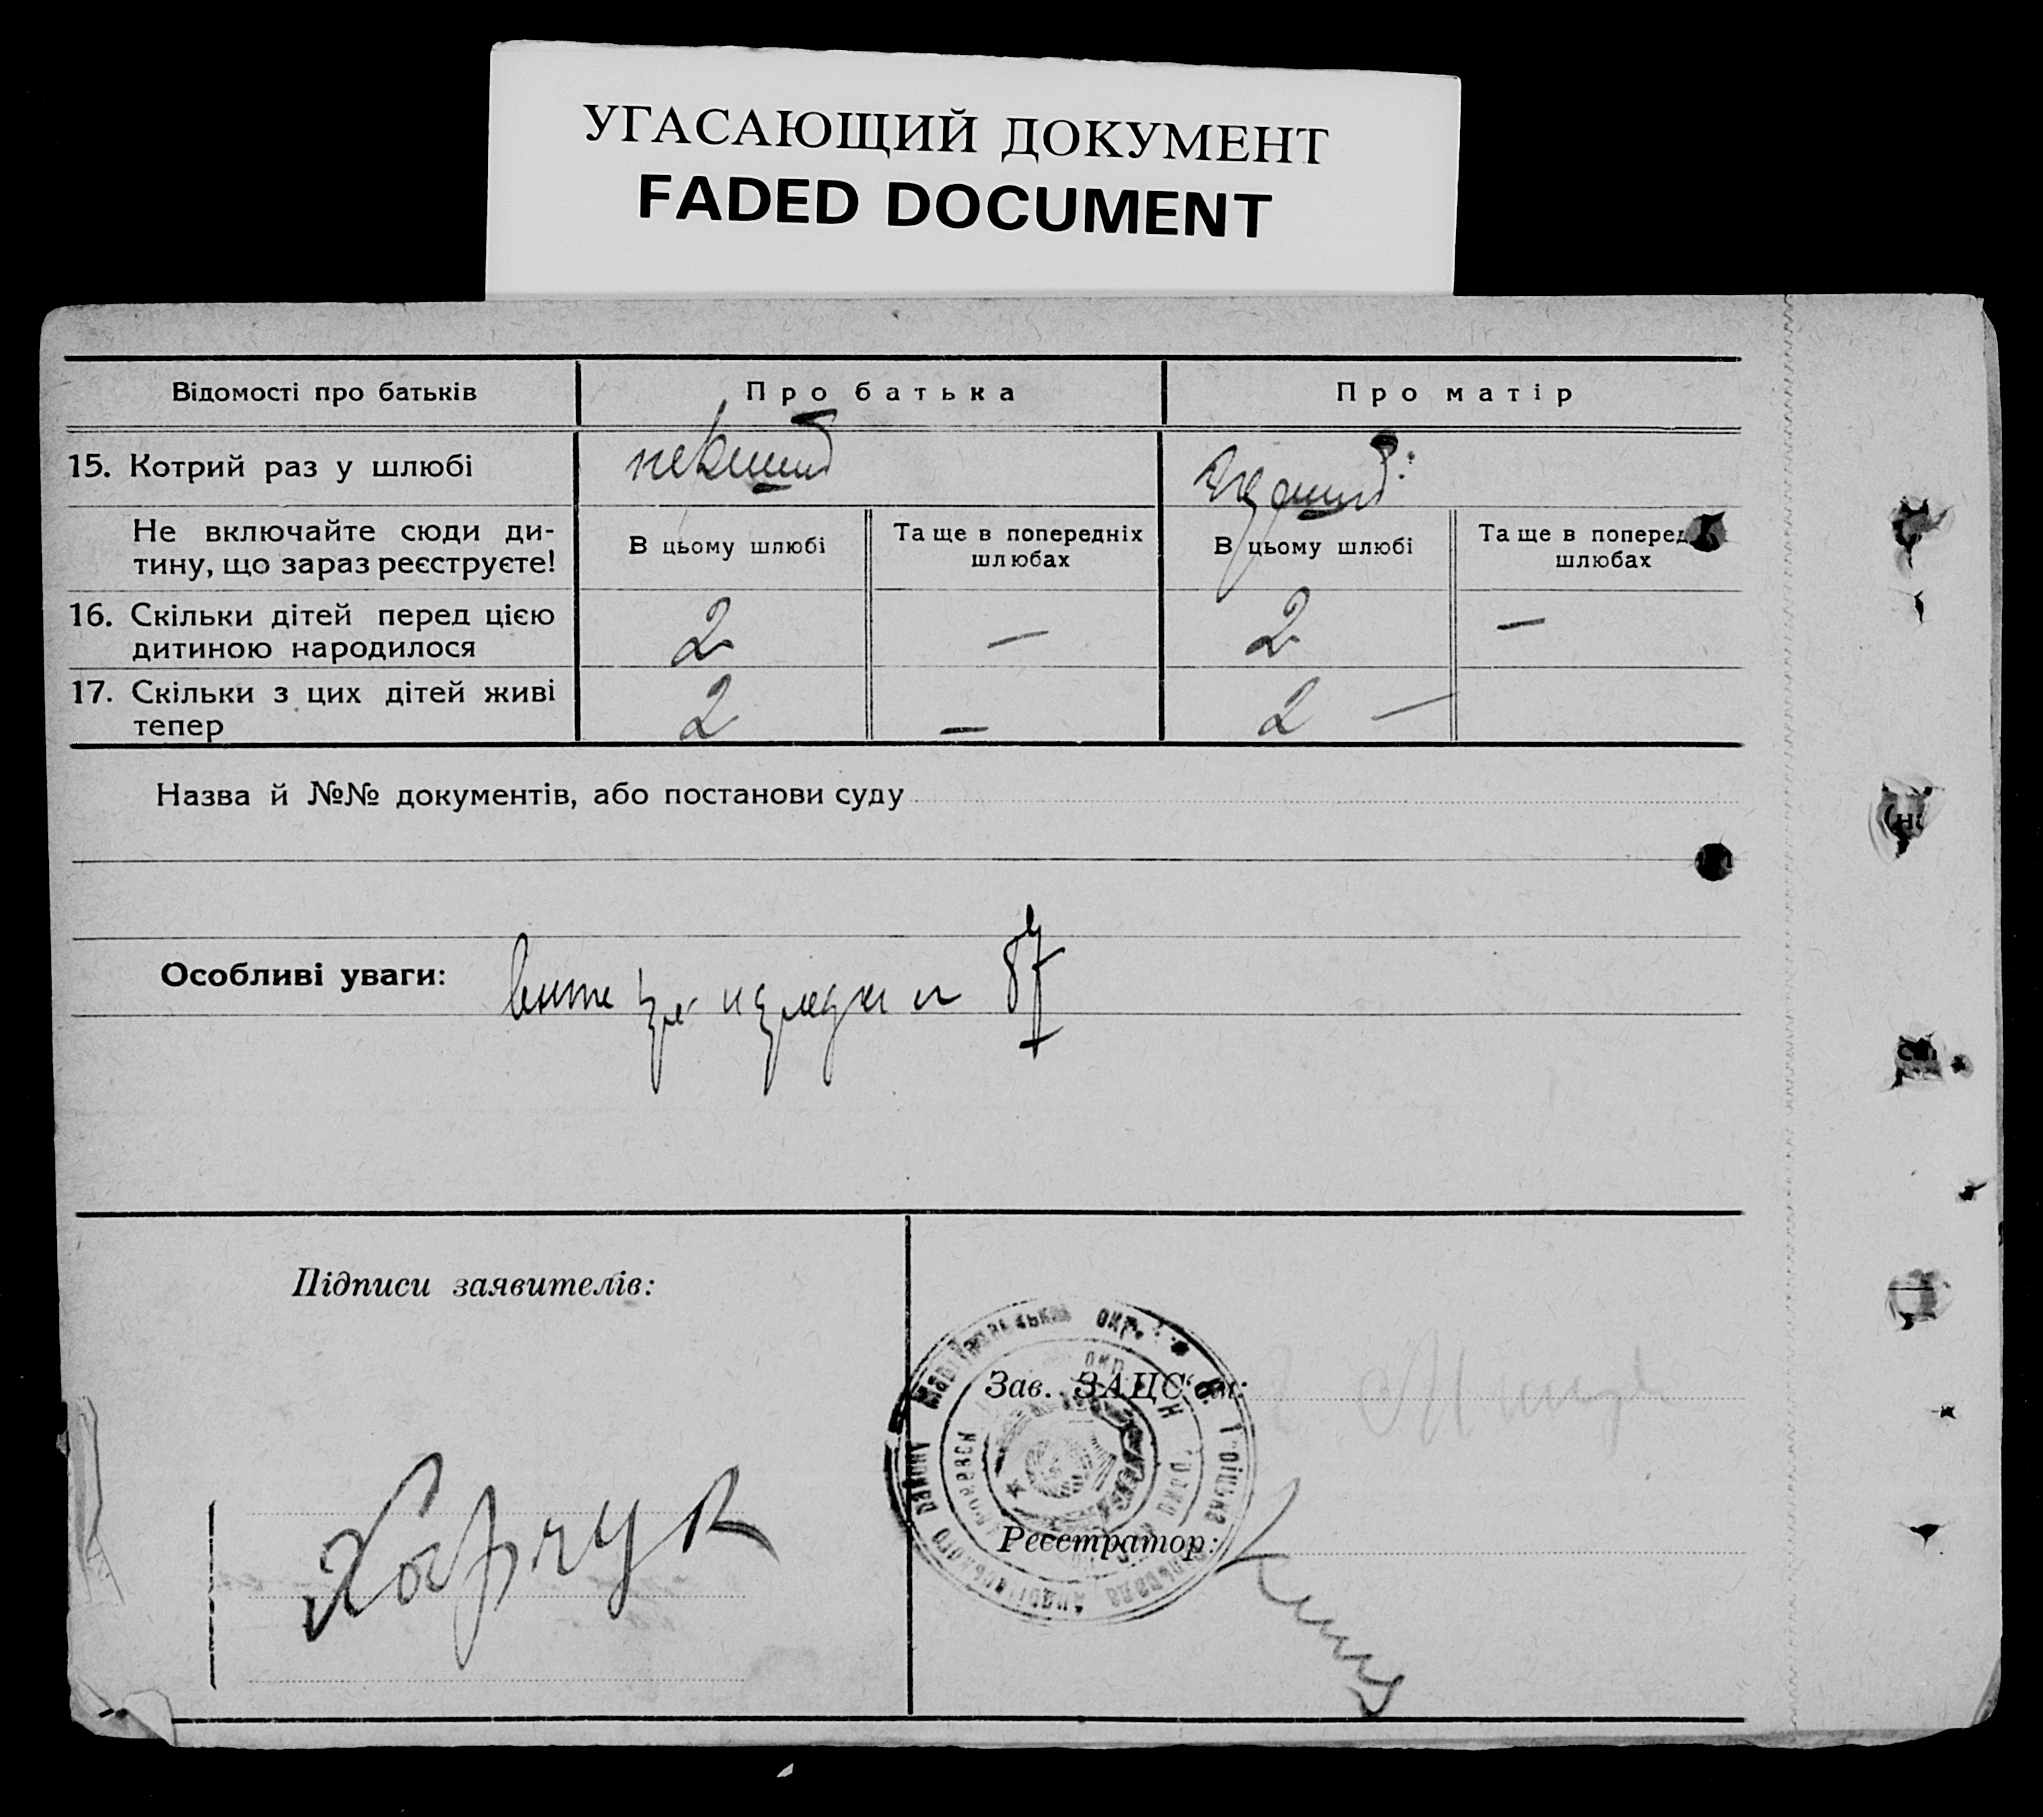 УГАСАЮЩИЙ ДОКУМЕНТ
FADED DOCUMENT
Відомості про батьків
Про батька
Про матір
15. Котрий раз у шлюбі
Не включайте сюди ди-
тину, що зараз реєструєте!
В цьому шлюбі
Та ще в попередніх
шлюбах
В цьому шлюбі
Та ще в поперед
шлюбах
16. Скільки дітей перед цією
дитиною народилося
2 — 2 —
17. Скільки з цих дітей живі
тепер
2 — 2 —
Назва й №№ документів, або постанови суду
Особливі уваги:
Підписи заявителів:
Зав. ЗАЦС'ом:
Харчук
Реєстратор: